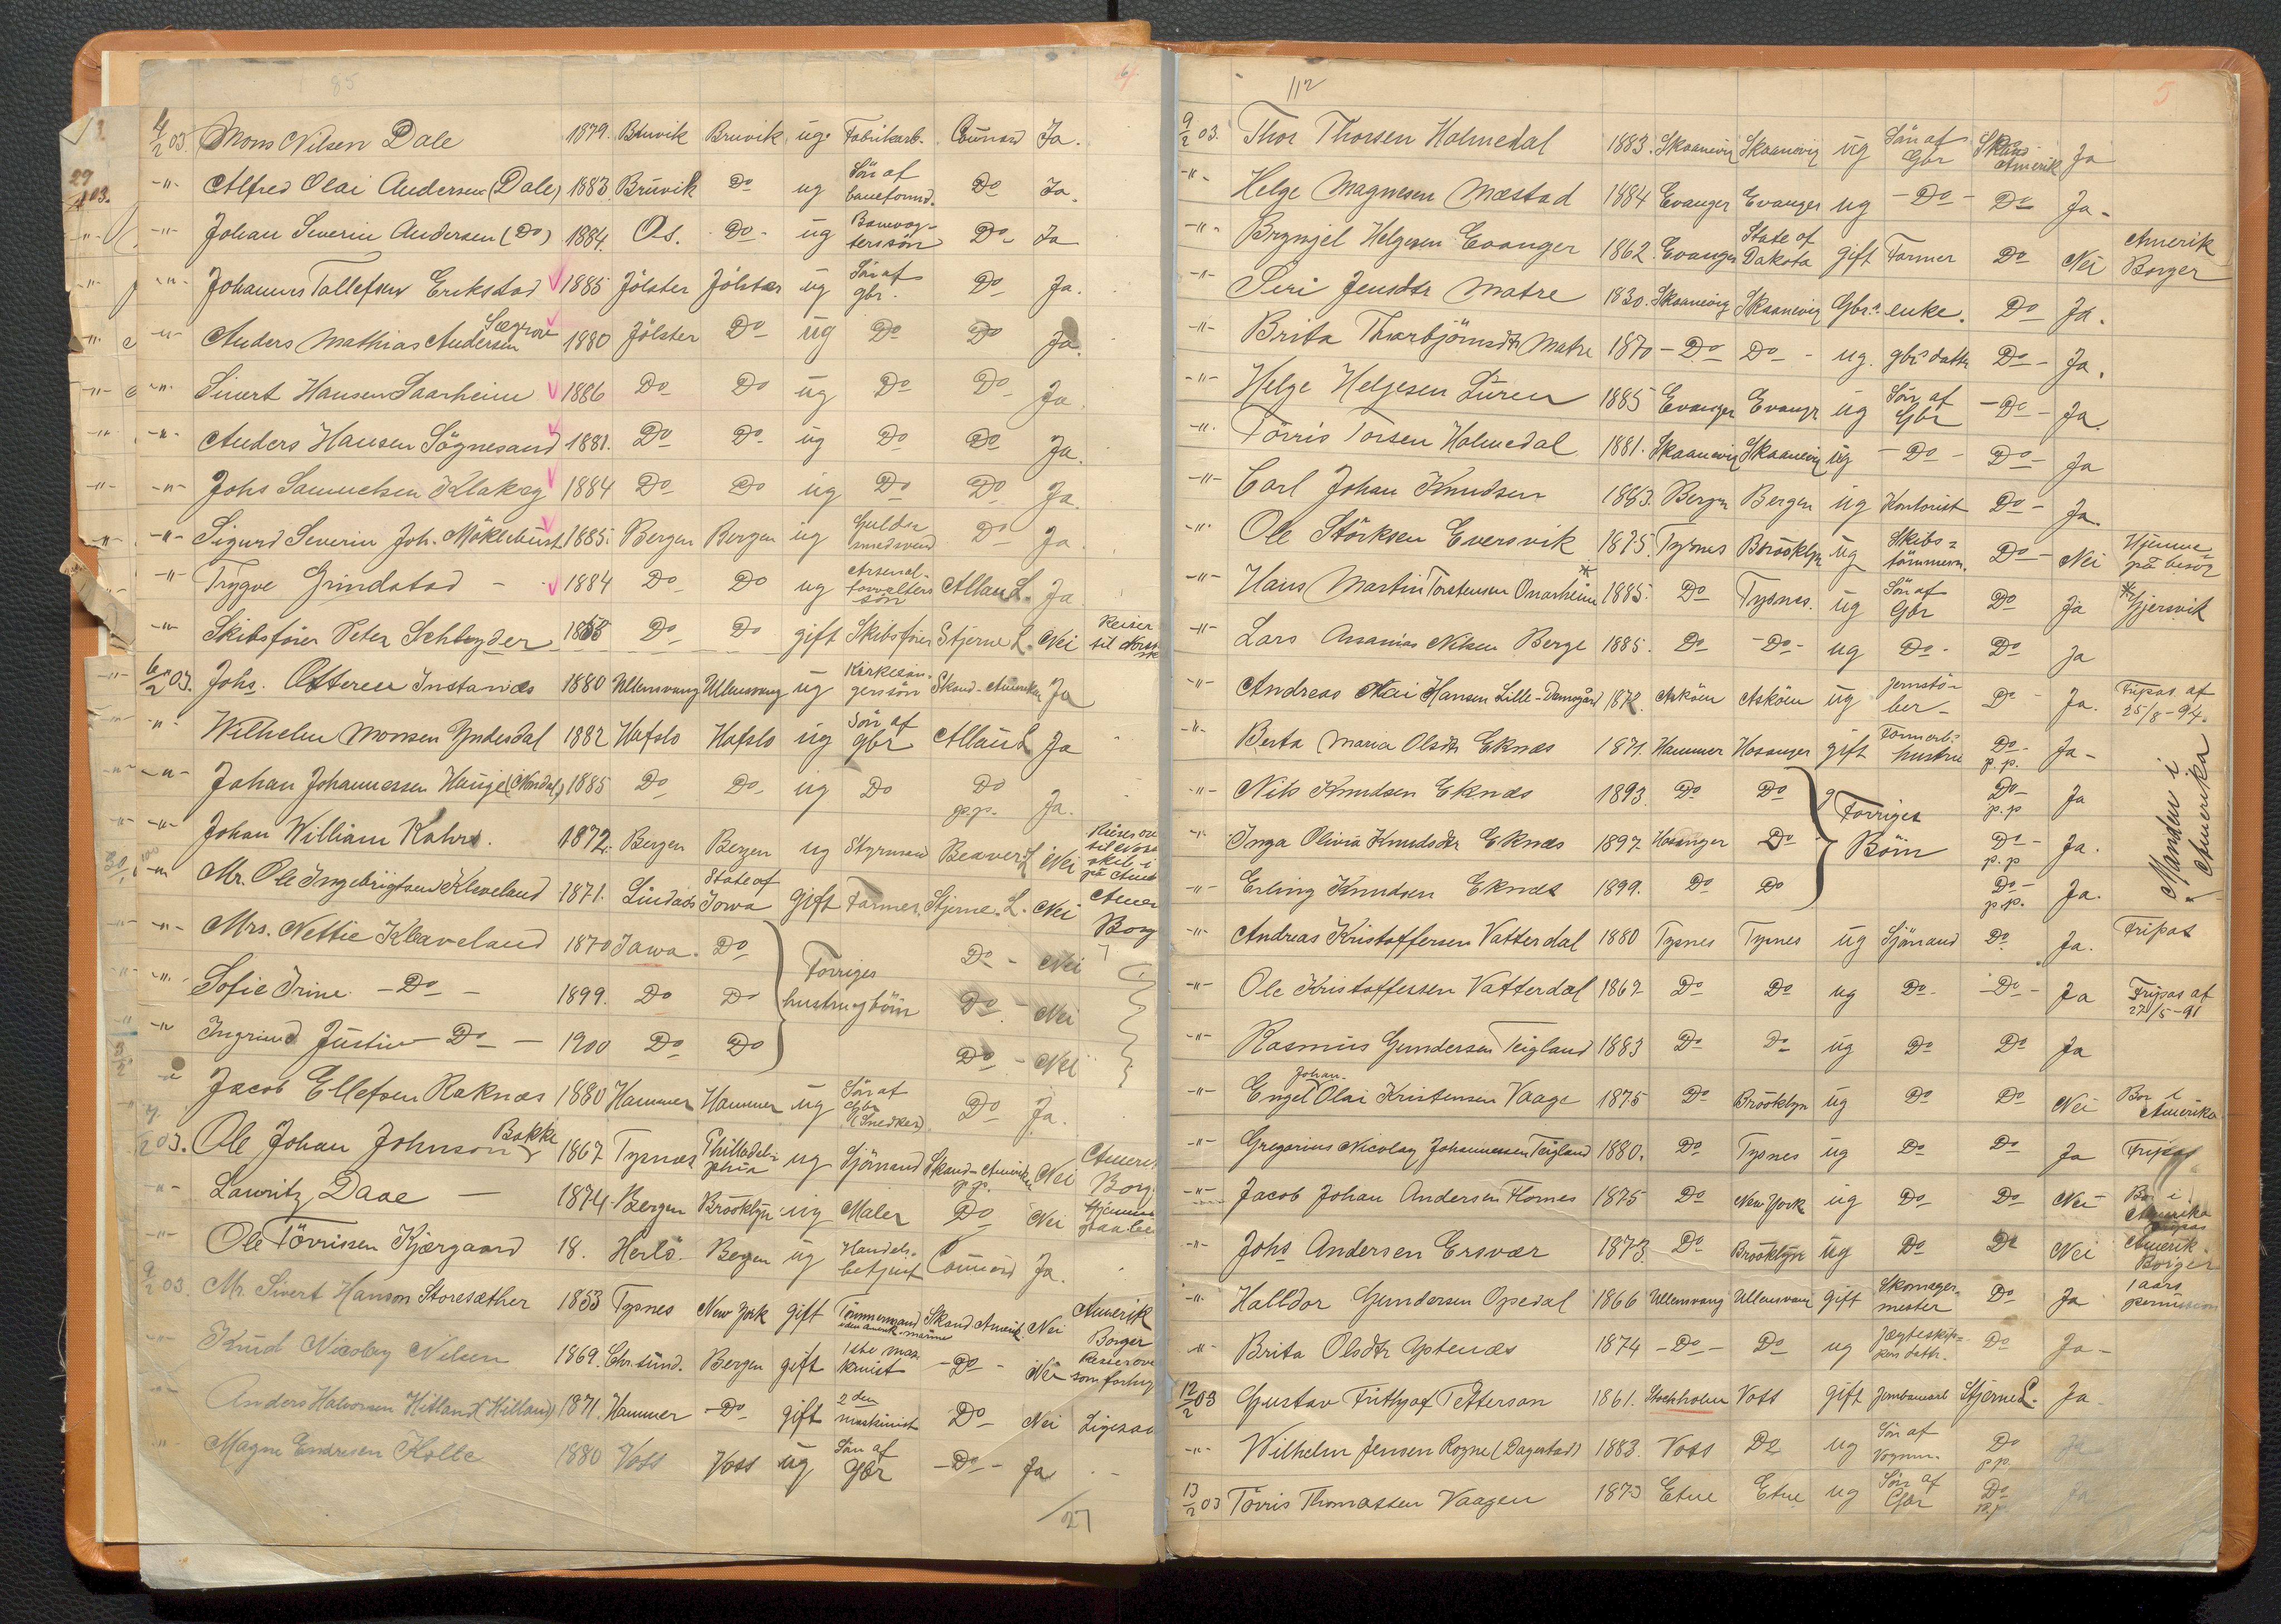 85
4/2 03. Mons Nilsen Dale 1879. Bruvik Bruvik ug. Fabrikarb. Cunard Ja.
-"- Alfred Olai Andersen (Dale) 1883 Bruvik Do ug Sön af baneformd. Do Ja.
-"- Johan Severin Andersen (Do) 1884. Os. Do- ug Banevogtersön Do- Ja
-"- Johannes Tollefsen Erikstad 1885 Jölster Jölster ug Sön af gbr. Do Ja.
-"- Anders Mathias Andersen Sægrov 1880 Jölster Do ug Do Do Ja.
-"- Sivert Hansen Saarheim 1886 Do Do ug Do Do Ja.
-"- Anders Hansen Sögnesand 1881. Do Do ug Do Do Ja.
-"- Johs Samuelsen Klakeg 1884 Do Do ug Do Do Ja.
-"- Sigurd Severin Joh. Möklebust 1885. Bergen Bergen ug Guldsmedsvend Do Ja.
-"- Trygve Grindstad - 1884 Do Do ug Arsenalforvalters sön Allan L. Ja
-"- Skibsförer Peter Schlyder 1858 Do Do gift Skibsförer Stjerne L. Nei Reiser til
6/2 03. Johs. Ottersen Instanæs 1880 Ullensvang Ullensvang ug Kirkesangersön Skand. Amerika Ja
-"- Wilhelm Monsen Yndesdal 1882 Hafslo Hafslo ug Sön af gbr Allan L Ja
-"- Johan Johannessen Hauge (Nondal) 1885 Do Do ug Do Do p.p. Ja.
-"- Johan William Kahrs. 1872. Bergen Bergen ug Styrmand Beaver L Nei
-"- Mr. Ole Ingebrigtsen Kleveland 1871. Lindaas State of Iowa gift Farmer. Stjerne. L. Nei Amer Borg
-"- Mrs. Nettie Kleaveland 1870 Iowa. Do Forriges hustru og börn Do - Nei
-"- Sofie Irine - Do - 1899. Do Do Do - Nei
-"- Ingrind Justin - Do - 1900 Do Do Do - Nei
Jacob Ellefsen Raknæs 1880 Hammer Hammer ug Sön af Gbr (Snedker) Do Ja.
7/2 03. Ole Johan Johnson Bakke 1867 Tysnæs Philladelphia ug Sjömand Skand-Amerika p.p. Nei Amerik Borg
-"- Lauritz Daae - 1874 Bergen Brooklyn ug Maler Do Nei Hjemme paa be
-"- Ole Törrissen Kjærgaard 18. Herlö. Bergen ug Handelsbetjent Cunard Ja.
9/2 03. Mr. Sivert Hanson Storesæther 1853 Tysnes New York gift Tömmermand i den Amerik. marine Skand Amerik. Nei Amerik Borger
-"- Knud Nicolay Nilsen 1869. Chr.sund. Bergen gift 1ste maskinist -Do- Nei Reiser ov som
-"- Anders Halvorsen Hitland (Hilland) 1871. Hammer -Do- gift 2den maskinist Do- Nei Ligesaa
-"- Magne Endresen Kolle 1880 Voss Voss ug Sön af Gbr -Do- Ja
27
112
5
9/2 03. Thor Thorsen Holmedal 1883. Skaanevig Skaanevig ug Sön af Gbr Skand Amerik Ja
-"- Helge Magnesen Mæstad 1884 Evanger Evanger ug -Do- Do Ja.
-"- Brynjel Helgesen Evanger 1862. Evanger State of Dakota gift Farmer Do Nei Amerik Borger
-"- Siri Jensdtr Matre 1830. Skaanevig Skaanevig Gbrs. enke. Do Ja.
-"- Brita Thorbjörnsdtr Matre 1870 -Do- Do- ug. gbrs datter Do- Ja.
-"- Helge Helgesen Furen 1885 Evanger Evanger ug Sön af Gbr -Do- Ja.
-"- Törris Torsen Holmedal 1881. Skaanevig Skaanevig ug -Do- Do- Ja
-"- Carl Johan Knudsen 1883. Bergen Bergen ug Kontorist Do- Ja.
-"- Ole Störksen Eversvik 1875. Tysnes Brooklyn ug Skibstömmerm. Do- Nei Hjemme på besög
-"- Hans Martin Torstensen Onarheim * 1885. Do Tysnes. ug Sön af Gbr Do Ja * Gjersvik
-"- Lars Ananias Nilsen Berge 1885. Do -Do- ug Do- Do Ja
-"- Andreas Olai Hansen Lille-Damsgård 1872. Asköen Asköen ug Jernstöber- Do- Ja. Fripas af 25/8-94.
-"- Berta Maria Olsdtr Eknæs 1871. Hammer Hosanger gift hustru Do- p.p. Ja-
-"- Nils Knudsen Eknæs 1893. Do Do Forriges Börn Do- p.p Ja
-"- Inga Olivia Knudsdtr Eknæs 1897 Hosanger Do Do- p.p Ja.
-"- Erling Knudsen Eknæs 1899. Do Do Do- p.p. Ja.
Manden i Amerika
-"- Andreas Kristoffersen Vatterdal 1880 Tysnes Tysnes ug Sjömand Do Ja. Fripas
-"- Ole Kristoffersen Vatterdal 1867 Do Do ug Do- -Do- Ja Fripas af 27/5-91
-"- Rasmus Gundersen Teigland 1883 Do Do ug Do Do Ja
-"- Engel Johan Olai Kristensen Vaage 1875 Do Brooklyn ug Do Do Nei Bor i Amerika
-"- Gregorius Nicolay Johannessen Teigland 1880. Do Tysnes ug Do Do Ja Fripas
-"- Jacob Johan Andersen Flornes 1875 Do New York ug Do Do Nei- Bor i Amerika
-"- Johs Andersen Ersvær 1873. Do Brooklyn ug Do Do Nei Amerik. Borger
-"- Halldor Gundersen Opedal 1866 Ullensvang Ullensvang gift Skomagermester Do Ja 1 aars permission
-"- Brita Olsdtr Ystenæs 1874 -Do- Do ug Jægteskippers datt. Do Ja-
12/2 03 Gustav Frithjof Petterson 1861. Stockholm Voss gift Jernbanearb Stjerne L. Ja
-"- Wilhelm Jensen Rogne (Dagestad) 1883. Voss Do ug Sön af Vognm. Do p.p. Ja
13/2 03 Törris Thomassen Vaagen 1873 Etne Etne ug Sön af Gbr Do p.p Ja